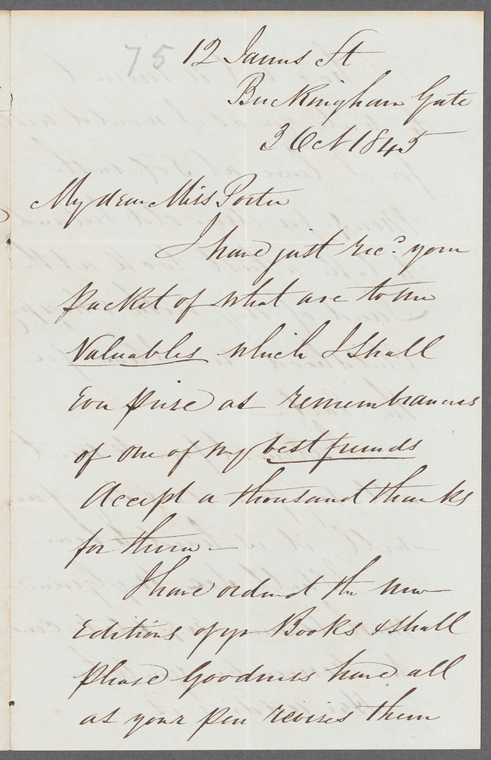 75
12 James St
Buckingham Gate
3 Oct 1845
My dear Miss Porter
I have just recd. your
packet of what are to me
Valuables which I shall
Ever prize as remembrances
of one of my best friends
Accept a thousand thanks
for them—
I have ordered the new
Editions of yr Books & shall
please Goodness have all
as your pen revises them